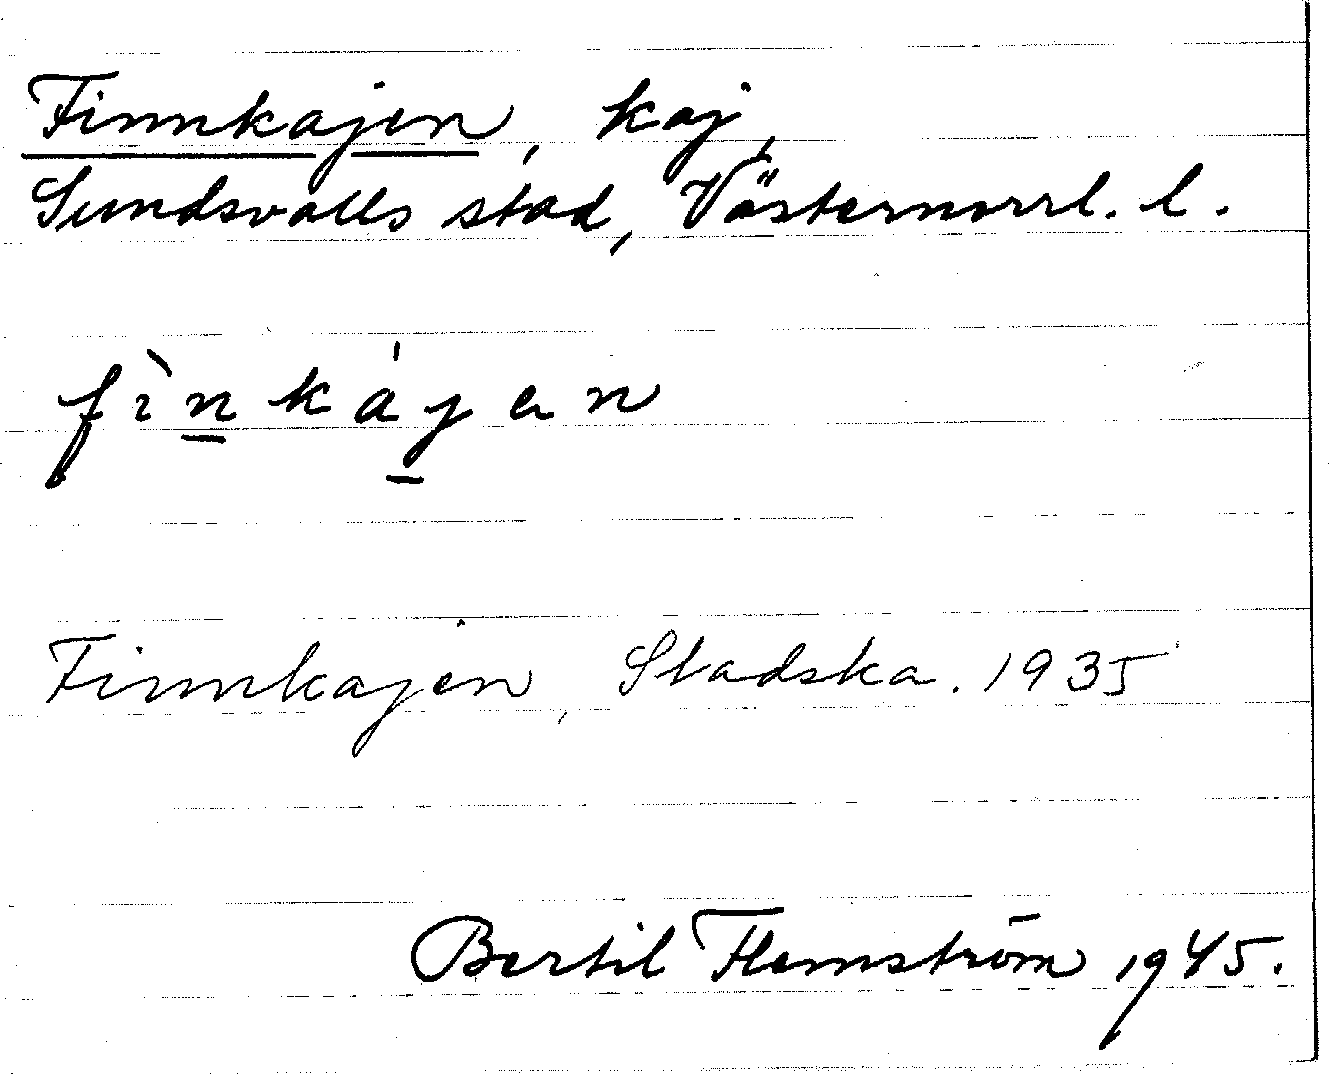 Finnkajen, kaj,
Sundsvalls stad, Västernorrl. l.
fìn̲káj̲en
Finnkajen, Stadska. 1935
Bertil Flemström 1945.